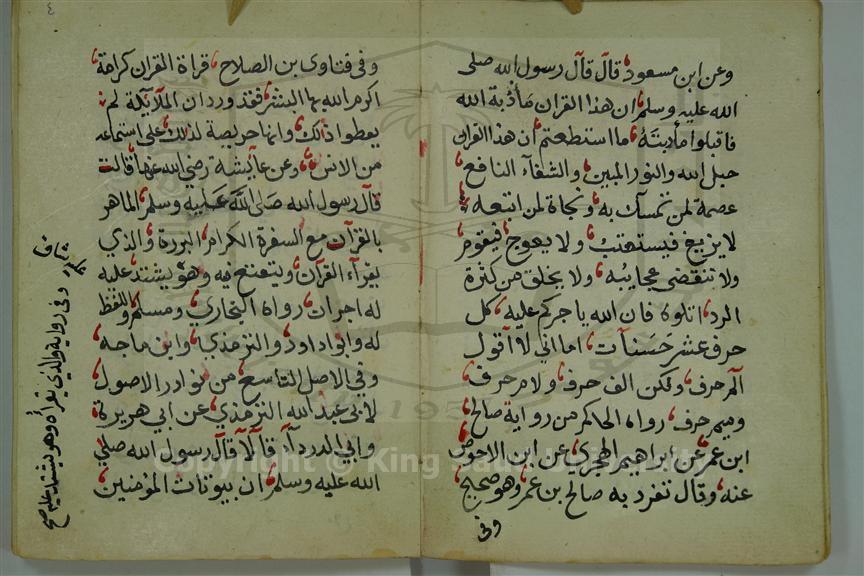 وعن ابن مسعود قال قال رسول الله صلى
الله عليه وسلم ان هذا القران مأدبة الله
فاقبلوا مأدبته ما استطعتم ان هذا القران
حبل الله والنور المبين والشفاء النافع
عصمة لمن تمسك به ونجاة لمن اتبعه
لا يزيغ فيستعتب ولا يعوج فيقوم
ولا تنقضي عجايبه ولا يخلق من كثرة
الرد اتلوه فان الله ياجركم عليه كل
حرف عشر حسنات اما اني لا اقول
الم حرف ولكن الف حرف ولام حرف
وميم حرف رواه الحاكم من رواية صالح
ابن عمر عن ابراهيم الهجري عن ابن الاحوص
عنه وقال تفرد به صالح بن عمر وهو صحيح
وفى
٤
وفى فتاوى بن الصلاح قراة القران كرامة
اكرم الله بها البشر فقد ورد ان الملايكة لم
يعطوا ذلك وانها حريصة لذلك على استماعه
من الانس وعن عايشة رضي الله عنها قالت
قال رسول الله صلى الله عليه وسلم الماهر
بالقران مع السفرة الكرام البررة والذي
يقرآء القرآن ويتعتع فيه وهو يشتد عليه
له اجران رواه البخاري ومسلم واللفظ
له وابو داود والترمذي وابن ماجه
وفي الاصل التاسع من نوادر الاصول
لابي عبد الله الترمذي عن ابي هريرة
وابي الدردآء قالا قال رسول الله صلى
الله عليه وسلم ان بيوتات المؤمنين
وفى رواية والذي يقرأه وهو يشتد عليه صح
Copyright © King Saud University
1957